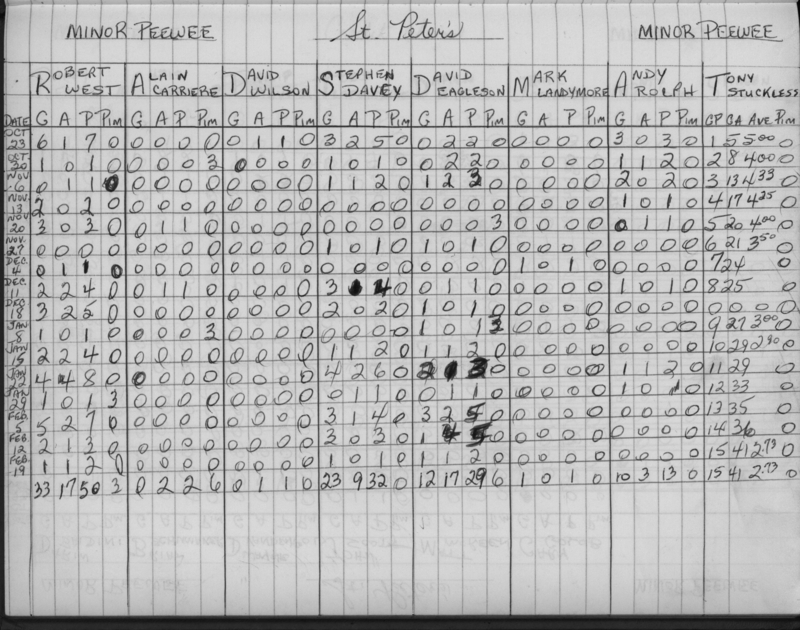 MINOR PEEWEE St. Peter's MINOR PEEWEE
ROBERT WEST ALAIN CARRIERE DAVID WILSON STEPHEN DAVEY DAVID EAGLESON MARK LANDYMORE ANDY ROLPH TONY STUCKLESS
DATE G A P Pim G A P Pim G A P Pim G A P Pim G A P Pim G A P Pim G A P Pim GP GA AVE Pim
OCT 23 6 1 7 0 0 0 0 0 0 1 1 0 3 2 5 0 0 2 2 0 0 0 0 0 3 0 3 0 1 5 5.00 0
OCT 30 1 0 1 0 0 0 0 3 0 0 0 0 1 0 1 0 0 2 2 0 0 0 0 0 1 1 2 0 2 8 4.00 0
NOV 6 0 1 1 0 0 0 0 0 0 0 0 0 1 1 2 0 1 2 3 0 0 0 0 0 2 0 2 0 3 13 4.33 0
NOV 13 2 0 2 0 0 0 0 0 0 0 0 0 0 0 0 0 0 0 0 0 0 0 0 0 1 0 1 0 4 17 4.25 0
NOV 20 3 0 3 0 0 1 1 0 0 0 0 0 0 0 0 0 0 0 0 3 0 0 0 0 0 1 1 0 5 20 4.00 0
NOV. 27 0 0 0 0 0 0 0 0 0 0 0 0 1 0 1 0 1 0 1 0 0 0 0 0 0 0 0 0 6 21 3.50 0
DEC. 4 0 1 1 0 0 0 0 0 0 0 0 0 0 0 0 0 0 0 0 0 1 0 1 0 0 0 0 0 7 24 0
DEC. 11 2 2 4 0 0 1 1 0 0 0 0 0 3 1 4 0 0 1 1 0 0 0 0 0 1 0 1 0 8 25 0
DEC 18 3 2 5 0 0 0 0 0 0 0 0 0 2 0 2 0 1 0 1 0 0 0 0 0 0 0 0 0 0 0 0 0
JAN 8 1 0 1 0 0 0 0 3 0 0 0 0 0 0 0 0 1 0 1 3 0 0 0 0 0 0 0 0 9 27 3.00 0
JAN 15 2 2 4 0 0 0 0 0 0 0 0 0 1 1 2 0 1 1 2 0 0 0 0 0 0 0 0 0 10 29 2.90 0
JAN 22 4 4 8 0 0 0 0 0 0 0 0 0 4 2 6 0 2 1 3 0 0 0 0 0 1 1 2 0 11 29 0
JAN 29 1 0 1 3 0 0 0 0 0 0 0 0 0 1 1 0 0 1 1 0 0 0 0 0 1 0 1 0 12 33 0
FEB. 5 5 2 7 0 0 0 0 0 0 0 0 0 3 1 4 0 3 2 5 0 0 0 0 0 0 0 0 0 13 35 0
FEB. 12 2 1 3 0 0 0 0 0 0 0 0 0 3 0 3 0 1 4 5 0 0 0 0 0 0 0 0 14 36 0
FEB 19 1 1 2 0 0 0 0 0 0 0 0 0 1 0 1 0 1 1 2 0 0 0 0 0 0 0 0 0 15 41 2.73 0
33 17 50 3 0 2 2 6 0 1 1 0 23 9 32 0 12 17 29 6 1 0 1 0 10 3 13 0 15 41 2.73 0